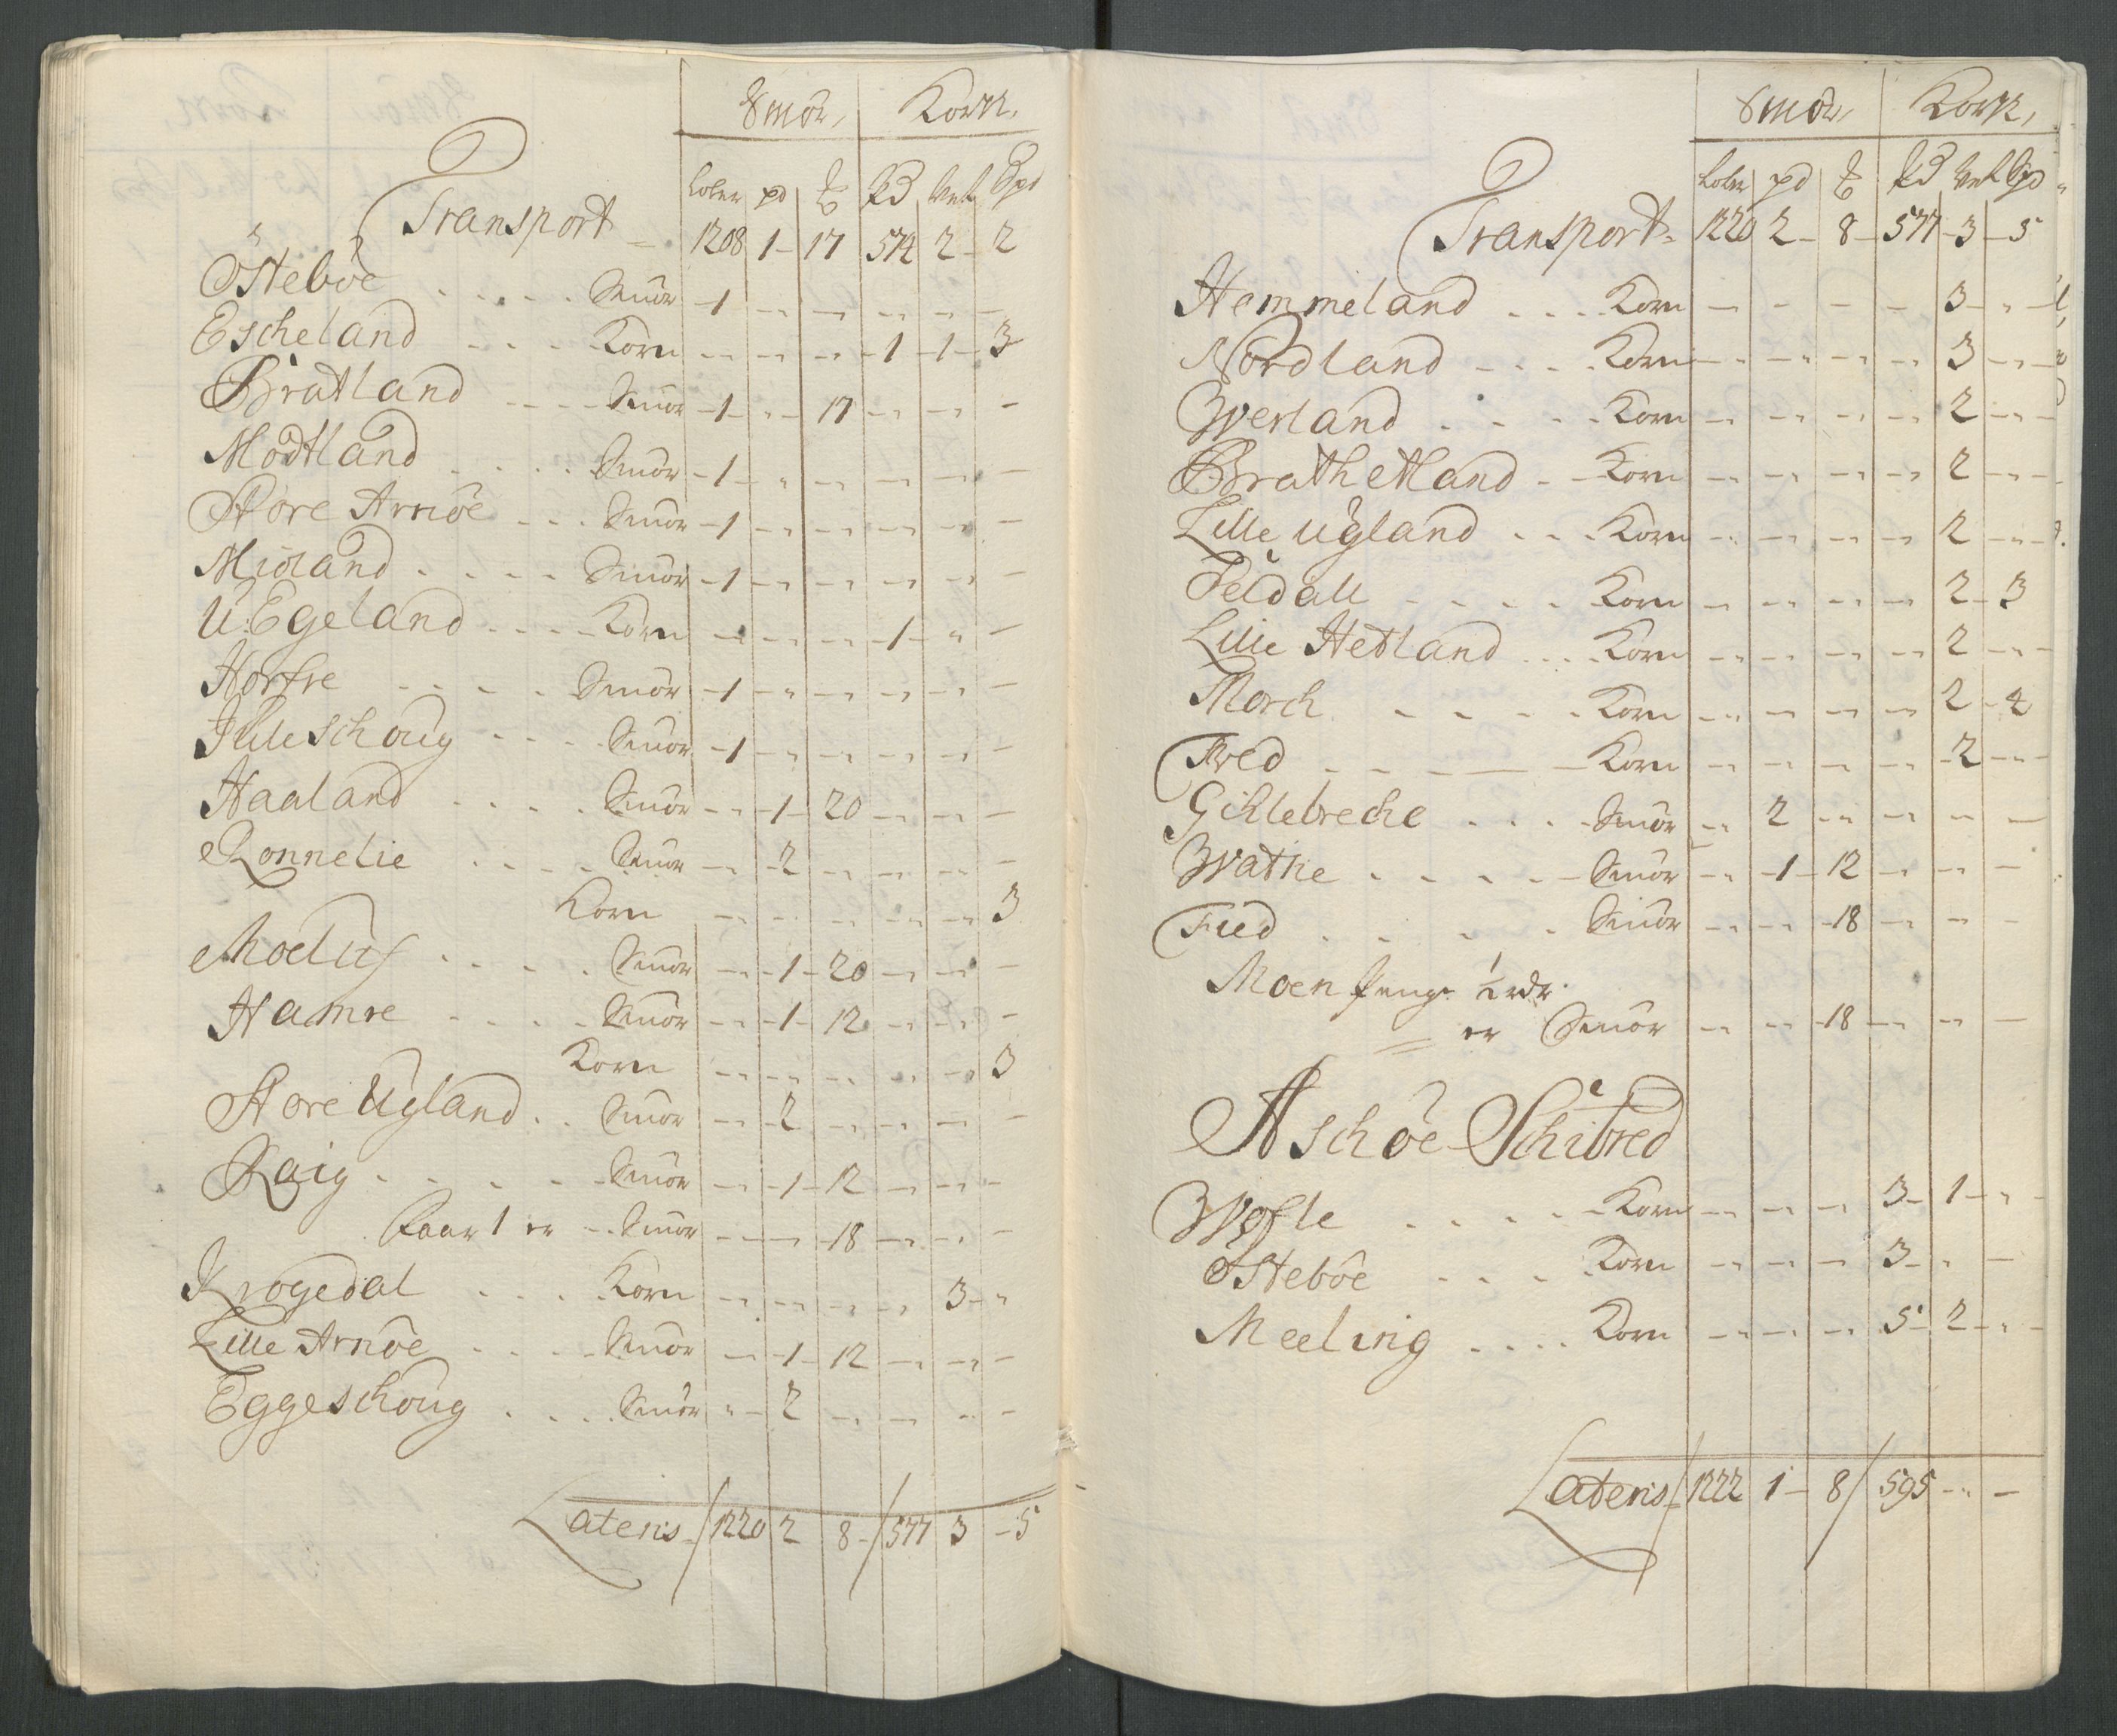 Smör, Korn,
Löber pd ℔ Td Vet Spd
Transport 1208 1 - 17 574 2 - 2
Östeböe . . . . . Smör - 1 - - - - -
Escheland . . . Korn - - - - 1 - 1 - 3
Bratland - - - Smör - 1 - - 17 - - -
Modtland . . . . Smör - 1 - - - - -
Store Arnöe . . . Smör - 1 - - - - -
Midland . . . . Smör - 1 - - - - -
U: Egeland . . . . Korn - - - - 1 - -
Hortre . . . . Smör - 1 - - - - -
Jldeschoug . . . . Smör - 1 - - - - -
Haaland . . . . Smör - - 1 - 20 - - -
Ronnelie . . . . Smör - - 2 - - - -
Korn - - - - - 3
Moeluf . . . . . Smör - - 1 - 20 - - -
Hamre . . . . Smör - - 1 - 12 - - -
Korn - - - - - 3
Store Ugland . . Smör - - 2 - - - -
Raig . . . . . Smör - - 1 - 12 - - -
Faar 1 er - Smör - - 18 - - -
Krogedal . . . Korn - - - - 3 - -
Lille Arnöe . . . . Smör - - 1 - 12 - - -
Eggeschoug . . . . Smör - - 2 - - - -
Lateris / 1220 2 8 / 577 3 - 5
Smör, Korn,
Löber pd ℔ Td Vet Spd
Transport 1220 2 - 8 - 577 - 3 - 5
Hemmeland . . . . Korn - - - - 3 - -
Nordland - . . . Korn - - - - 3 - -
Werland . . . . Korn - - - - 2 - -
Brathetland - - Korn - - - - 2 - -
Lille Ugland . . . Korn - - - - 2 - -
Feldall . . . . Korn - - - - 2 - 3
Lille Hetland . . . . Korn - - - - 2 - -
Morch . . . . Korn - - - - 2 - 4
Tved - - - - Korn - - - - 2 - -
Gicklebreche . . . . Smör - 2 - - - -
Wathe . . . . . Smör - - 1 - 12 - - -
Fied . . . . Smör - - - 18 - - -
Moen penge ½ rdr
er Smör - - - 18 - - -
Aschöe Schibred
Wofle . . . . Korn - - - 3 - 1 - -
Östeböe . . . . Korn - - - 3 - - -
Meeling . . . . Korn - - - 5 - 2 - -
Lateris / 1222 1 - 8 / 595 - - -